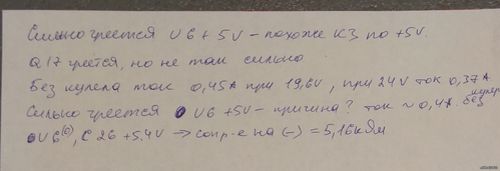 Сильно греется U6 +5V – похоже КЗ по +5V.
Q17 греется, но не так сильно
Без кулера ток 0,45А при 19,6V, при 24V ток 0,37А
Сильно греется U6 +5V – причина? ток ~ 0,4А. без кулера
U6, C26 +5.4V → сопр-е на (–) = 5,16кОм